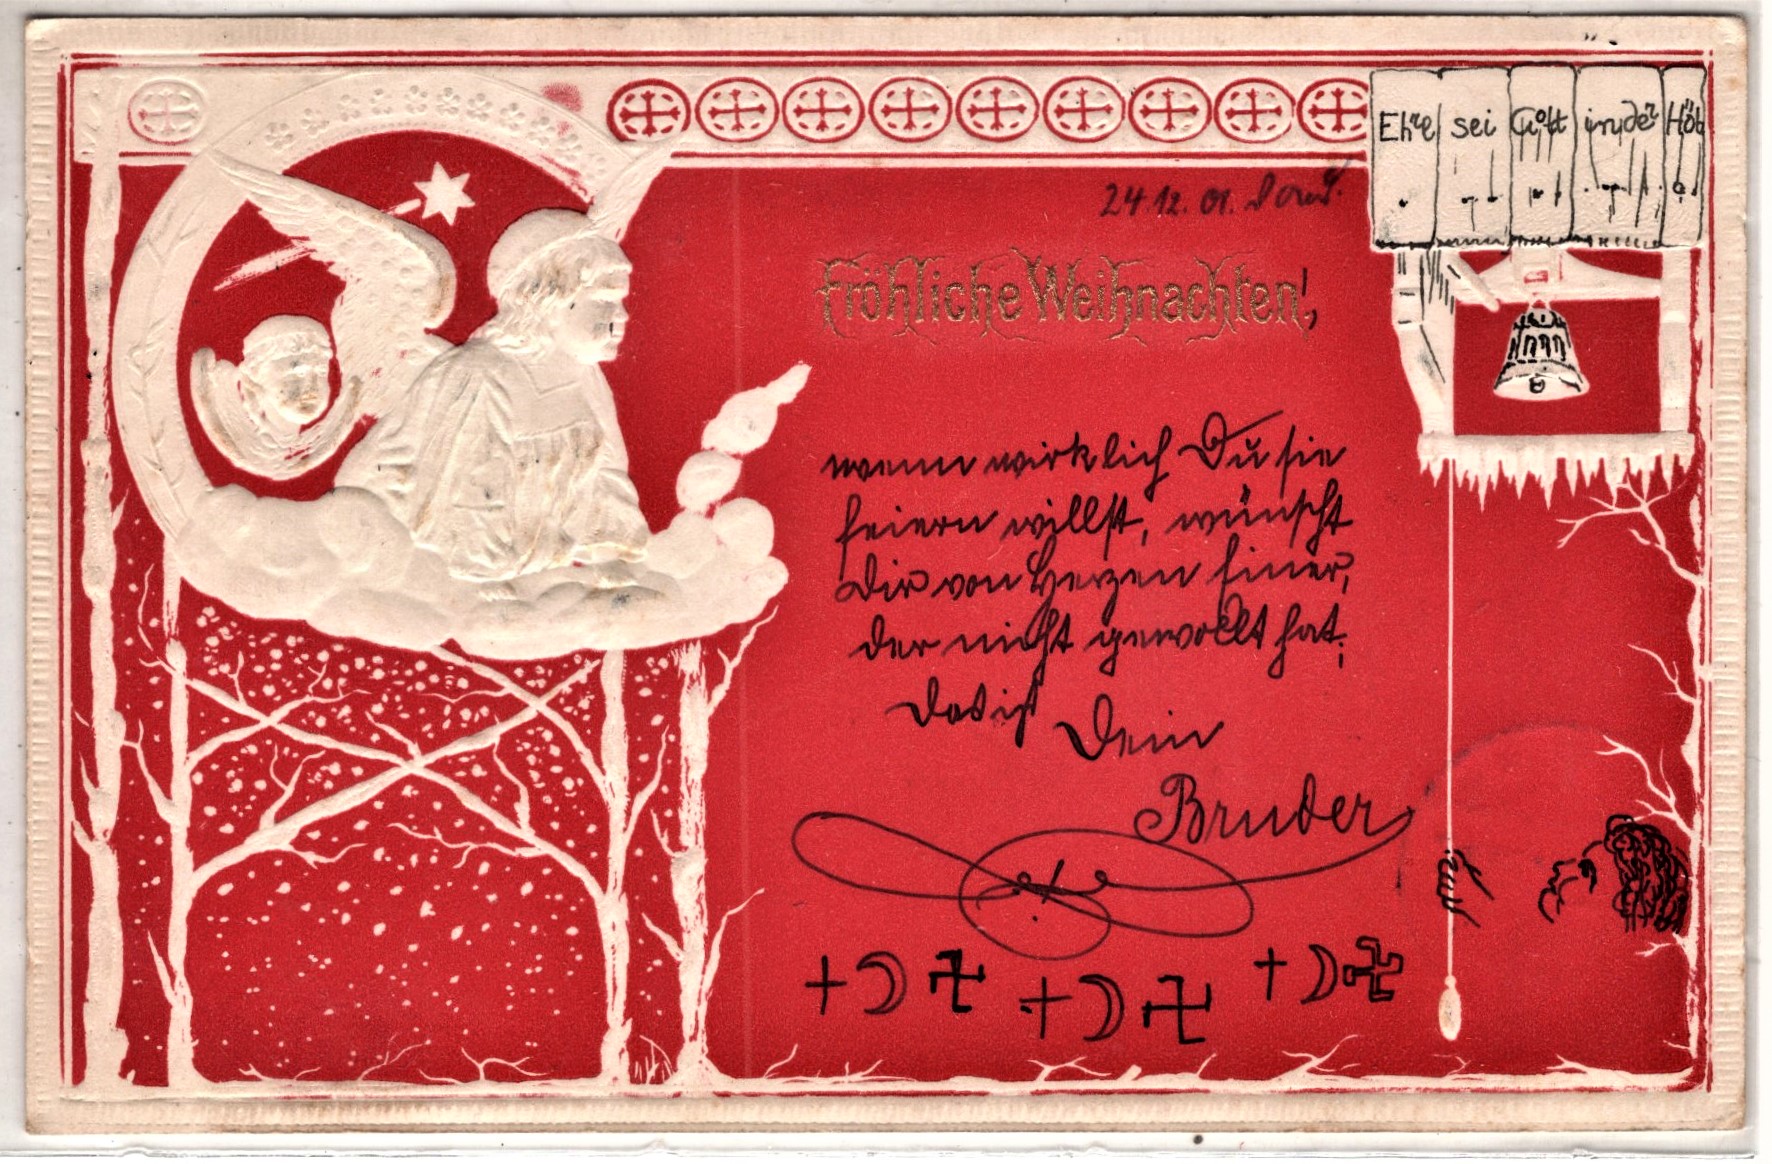 Ehre sei Gott in der Höh
24.12.01.
Fröhliche Weihnachten!,
wenn wirklich Du sie
feiern willst, wünscht
Dir von Herzen Einer,
der nicht gewollt hat;
das ist Dein
Bruder